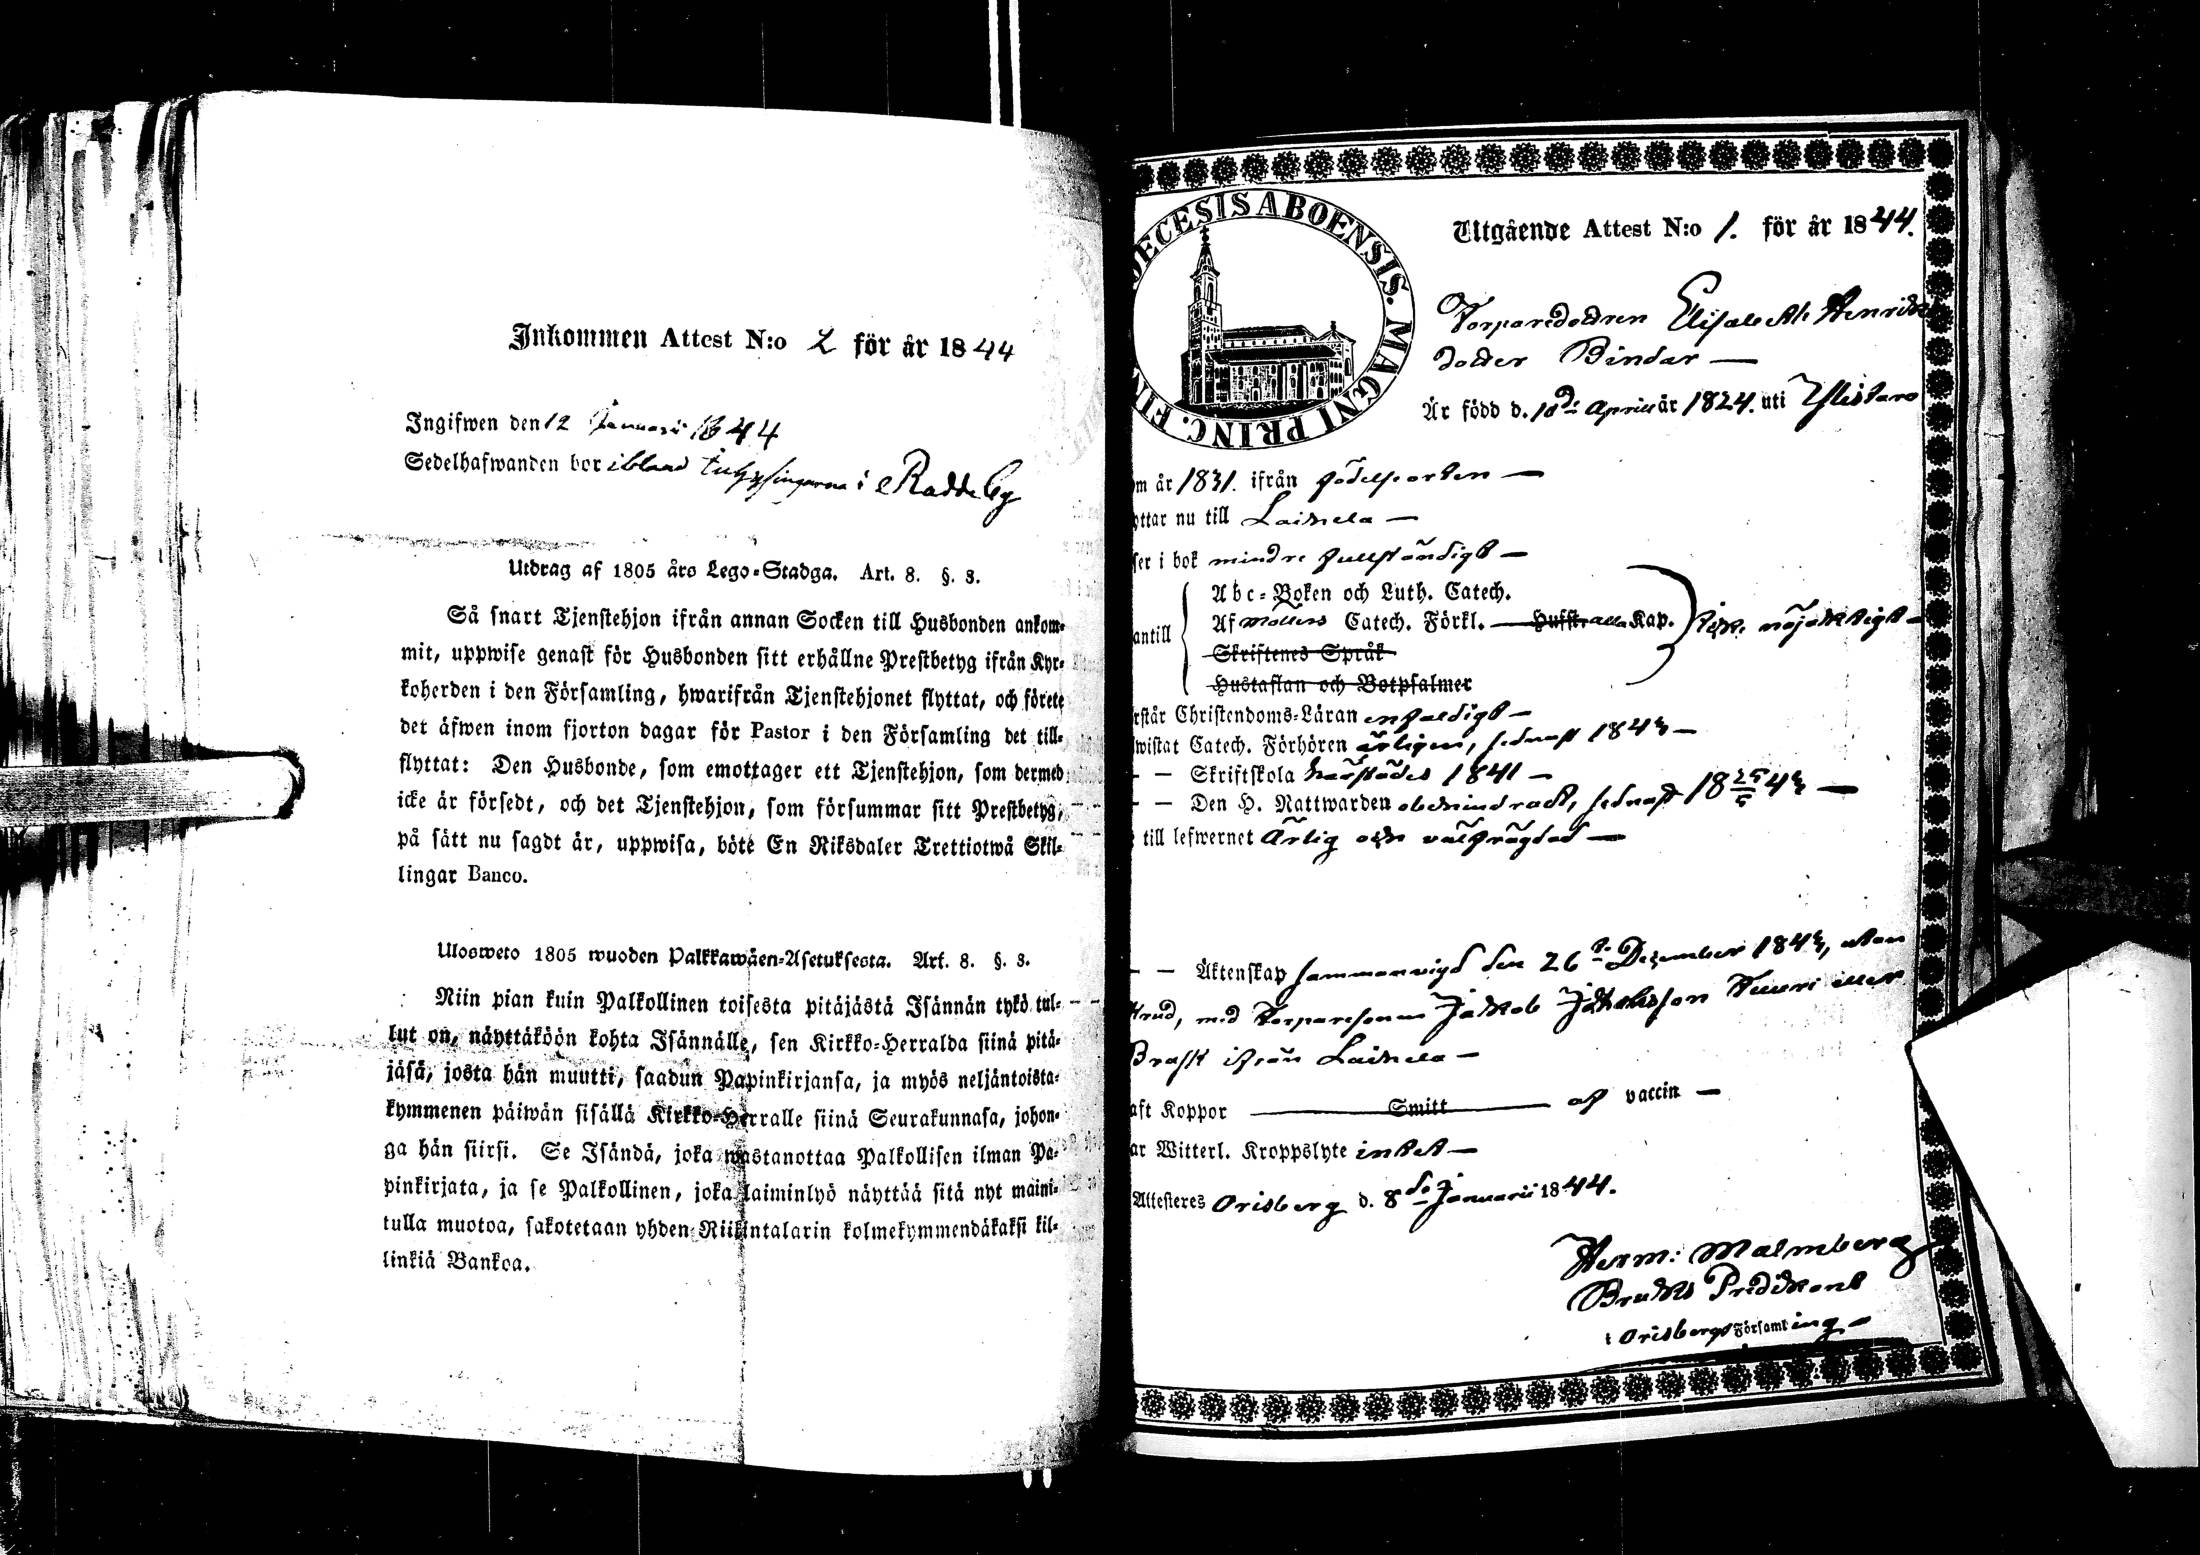 Inkommen Attest N:o 2 för år 1844
Ingifwen den 12 Januari 1844
Sedelhafwanden bor ibland i Raddeby
Utdrag af 1805 års Lego-Stadga. Art. 8. §. 3.
Så snart Tjenstehjon ifrån annan Socken till Husbonden ankom-
mit, uppwise genast för Husbonden sitt erhållne Prestbetyg ifrån Kyr-
koherden i den Församling, hwarifrån Tjenstehjonet flyttat, och förete
det äfwen inom fjorton dagar för Pastor i den Församling det till-
flyttat: Den Husbonde, som emottager ett Tjenstehjon, som dermed
icke är försedt, och det Tjenstehjon, som försummar sitt Prestbetyg,
på sätt nu sagdt är, uppwisa, böte En Riksdaler Trettiotwå Skil-
lingar Banco.
Ulosweto 1805 wuoden Palkkawäen-Asetuksesta. Art. 8. §. 3.
Niin pian kuin Palkollinen toisesta pitäjästä Isännän tykö tul-
lut on, näyttäköön kohta Isännälle, sen Kirkko-Herralda siinä pitä-
jäsä, josta hän muutti, saadun Papinkirjansa, ja myös neljäntoista-
kymmenen päiwän sisällä Kirkko-Herralle siinä Seurakunnasa, johon-
ga hän siirsi. Se Isändä, joka wastanottaa Palkollisen ilman Pa-
pinkirjata, ja se Palkollinen, joka laiminlyö näyttää sitä nyt maini-
tulla muotoa, sakotetaan yhden Riikintalarin kolmekymmendäkaksi kil-
linkiä Bankoa.
DECESIS ABOENSIS. MAGNI PRINC. FIN
Utgående Attest N:o 1. för år 1844.
Torparedottren Elisabeth Henriks
dotter Bindar —
Är född d. 10de April år 1824. uti Ylistaro
m år 1831. ifrån födelseorten —
ttar nu till Laihela —
ser i bok mindre fullständigt —
antill
Abc-Boken och Luth. Catech.
Af Möllers Catech. Förkl. — Husstr. alla Kap.
Skriftenes Språk
Hustaflan och Botpsalmer
nöjaktigt —
rstår Christendoms-Läran enfaldigt —
wistat Catech. Förhören årligen, sednast 1843 —
— — Skriftskola härstädes 1841 —
— — Den H. Nattwarden obehindradt, sednast 18 25/5 43 —
till lefwernet Ärlig och välfrägdad —
— — Äktenskap sammanvigd den 26de December 1843, utan
krud, med Torparesonen Jakob Jakobsson Tuuri eller
Brask ifrån Laihela —
aft Koppor — Smitt — af vaccin —
ar Witterl. Kroppslyte intet —
Attesteres Orisberg d. 8de Januarii 1844.
Herm: Malmberg
Bruks Predikant
i Orisbergs Församling —